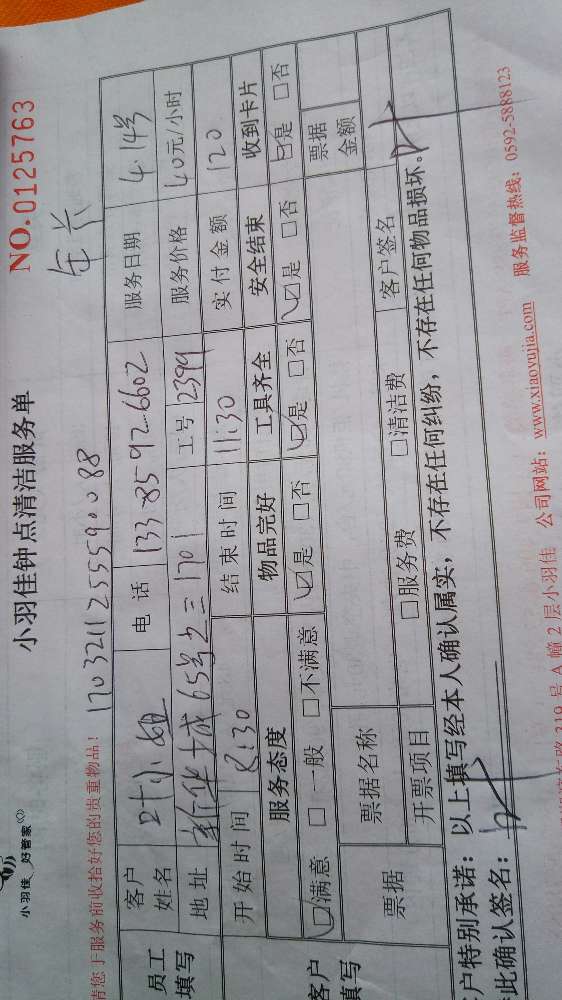 小羽佳 好管家
小羽佳钟点清洁服务单
NO.0125763
请您于服务前收拾好您的贵重物品！
17032112555590088
员工填写
客户姓名 叶小姐 电话 133-8592-6602 服务日期 4.14号
地址 新华城65号之三1701 工号 2399 服务价格 40元/小时
开始时间 8:30 结束时间 11:30 实付金额 120
客户填写
服务态度 物品完好 工具齐全 安全结束 收到卡片
☑满意 □一般 □不满意 ☑是 □否 ☑是 □否 ☑是 □否 ☑是 □否
票据 票据名称 票据金额
开票项目 □服务费 □清洁费 客户签名
户特别承诺：以上填写经本人确认属实，不存在任何纠纷，不存在任何物品损坏。
此确认签名：
路319号A幢2层小羽佳 公司网站：www.xiaoyujia.com 服务监督热线：0592-5888123